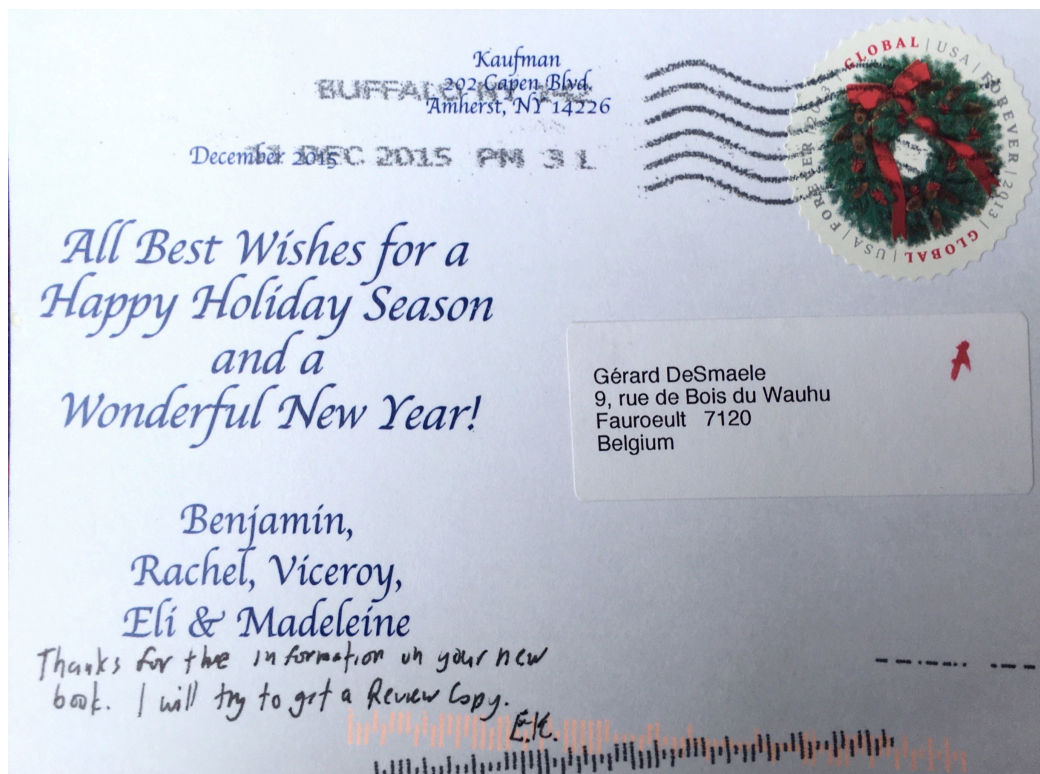 Kaufman
202 Capen Blvd.
Amherst, NY 14226
BUFFALO NY
December 2015
DEC 2015 PM 3 L
GLOBAL | USA | FOREVER | 2013 | GLOBAL | USA | FOREVER | 2013
All Best Wishes for a
Happy Holiday Season
and a
Wonderful New Year!
Gérard DeSmaele
9, rue de Bois du Wauhu
Fauroeult 7120
Belgium
A
Benjamin,
Rachel, Viceroy,
Eli & Madeleine
Thanks for the information on your new
book. I will try to get a Review Copy.
E.K.